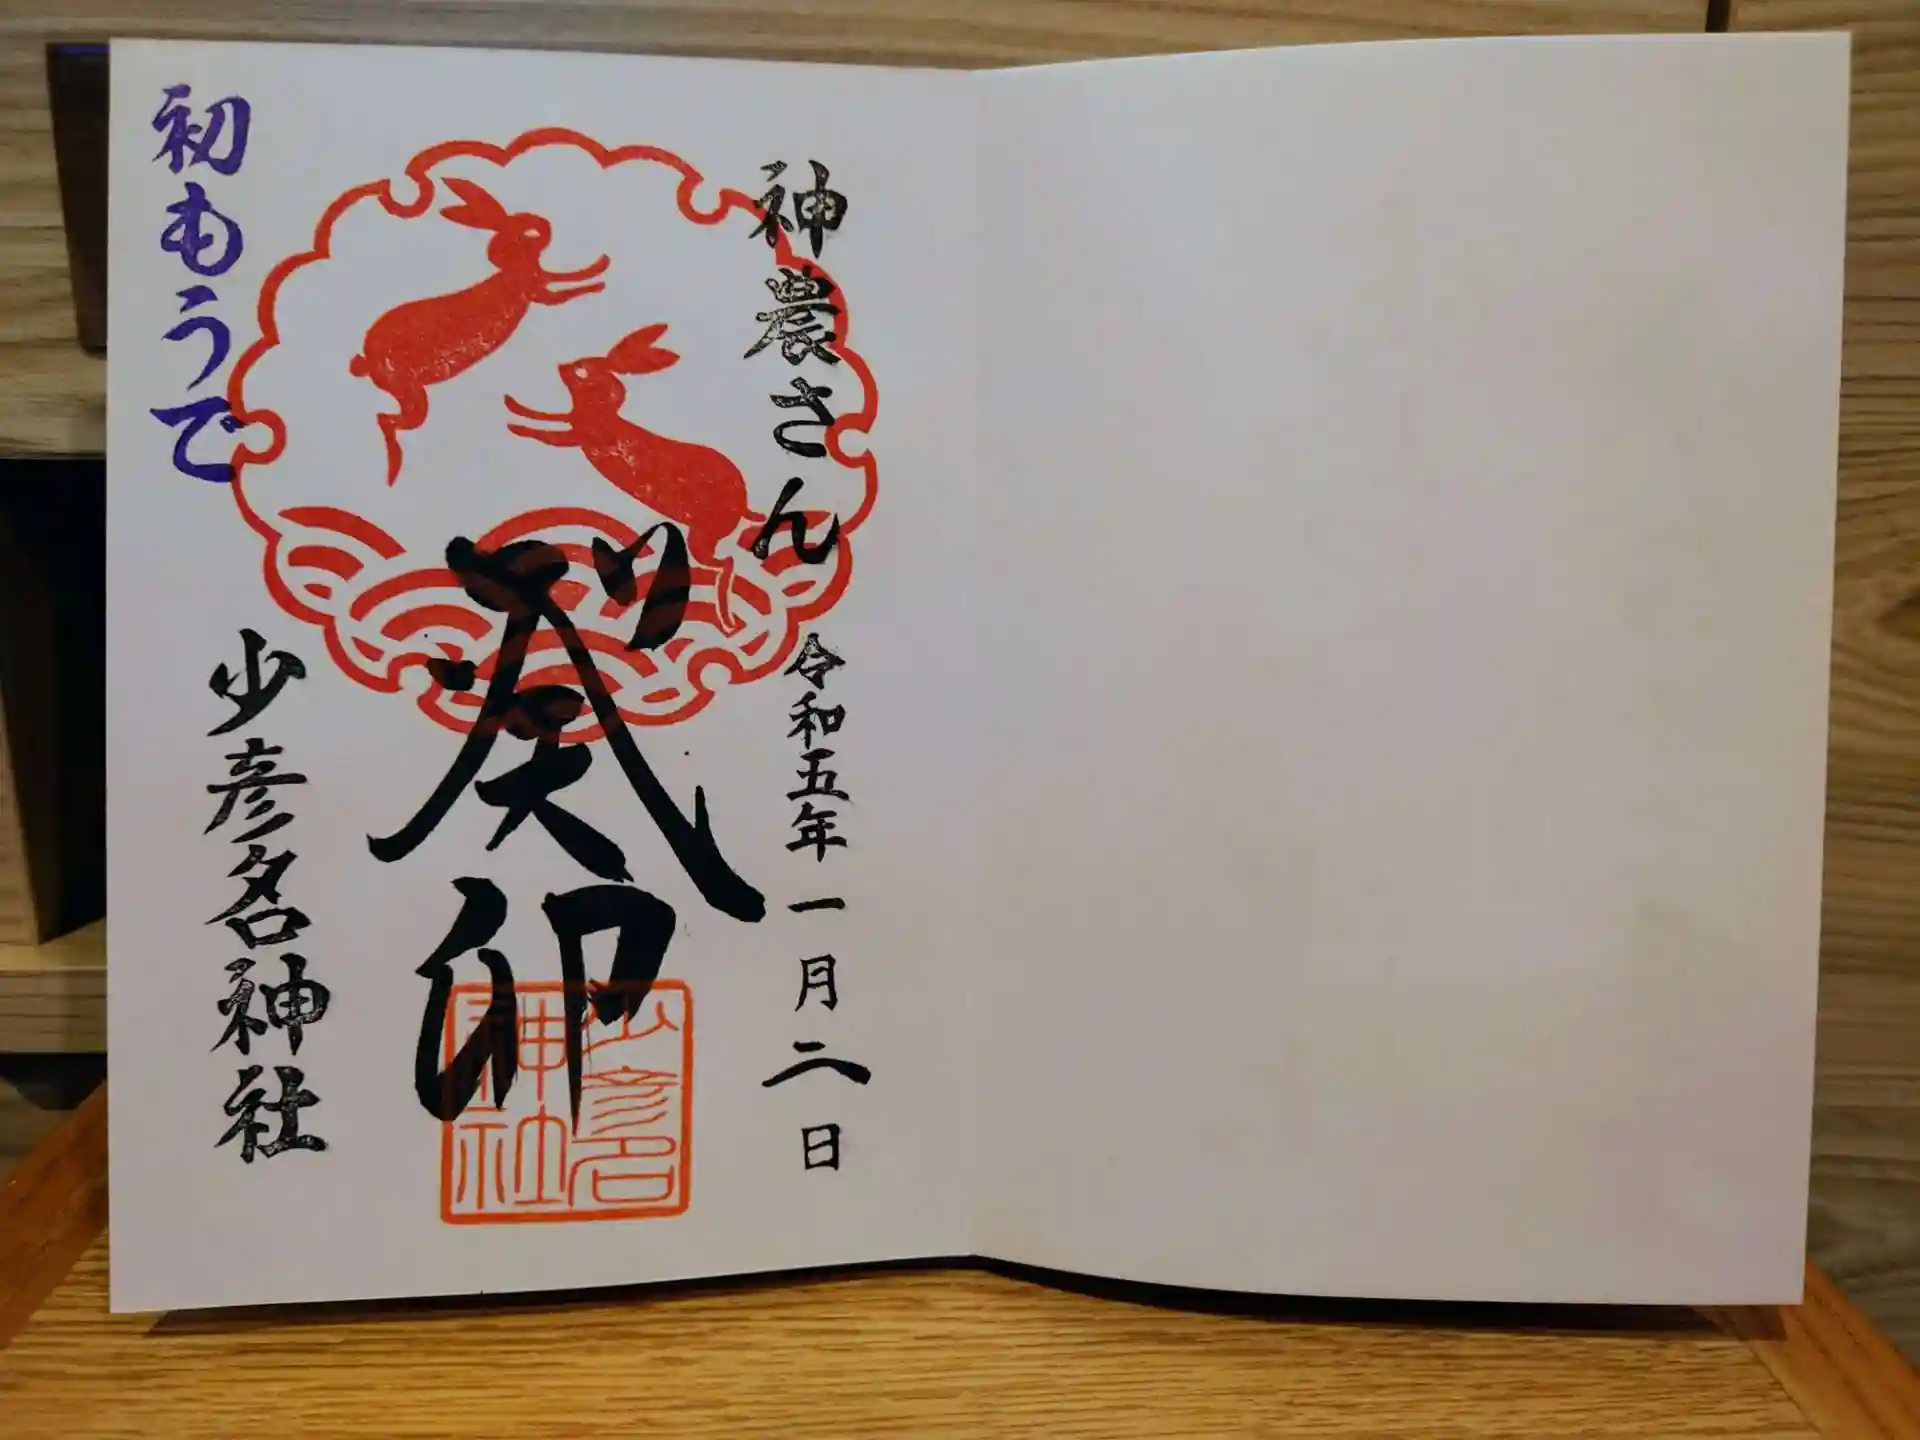 神農さん
令和五年一月二日
癸卯
少彦名
神社
初もうで
少彦名神社